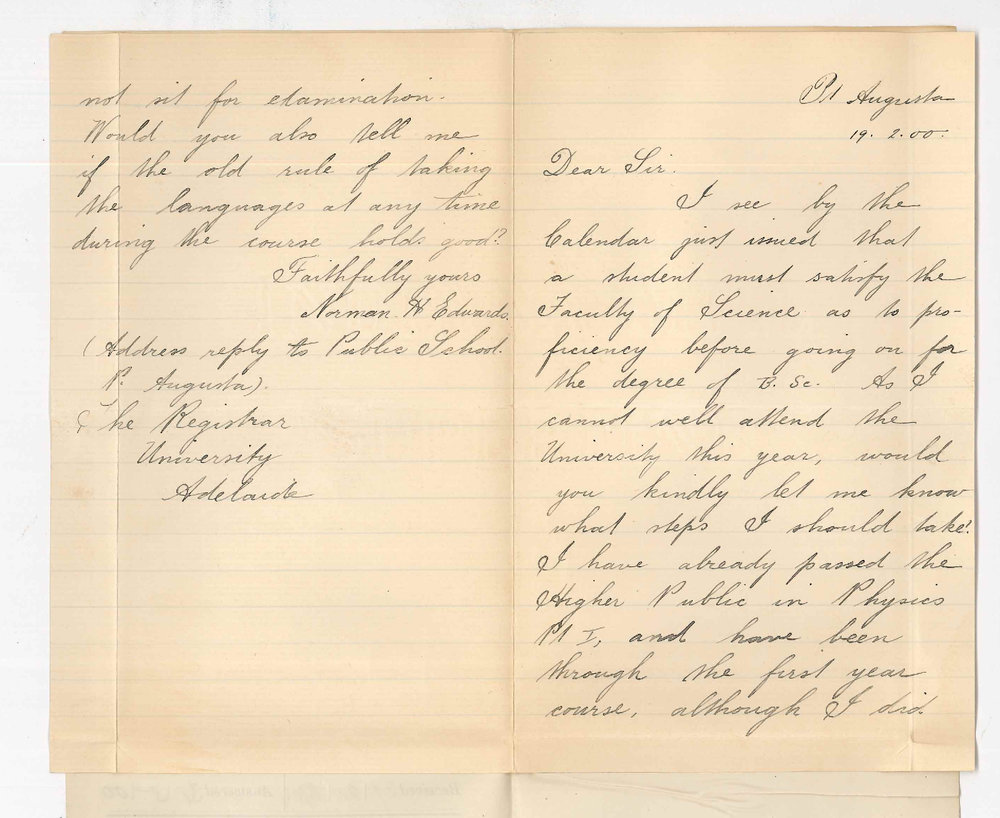 Pt Augusta
19. 2. 00.
Dear Sir.
I see by the
Calendar just issued that
a student must satisfy the
Faculty of Science as to pro-
ficiency before going on for
the degree of B. Sc. As I
cannot well attend the
University this year, would
you kindly let me know
what steps I should take?
I have already passed the
Higher Public in Physics
Pt I, and have been
through the first year
course, although I did
not sit for examination.
Would you also tell me
if the old rule of taking
the languages at any time
during the course holds good?
Faithfully yours
Norman H Edwards.
(Address reply to Public School.
P. Augusta).
The Registrar
University
Adelaide
Received
Answered